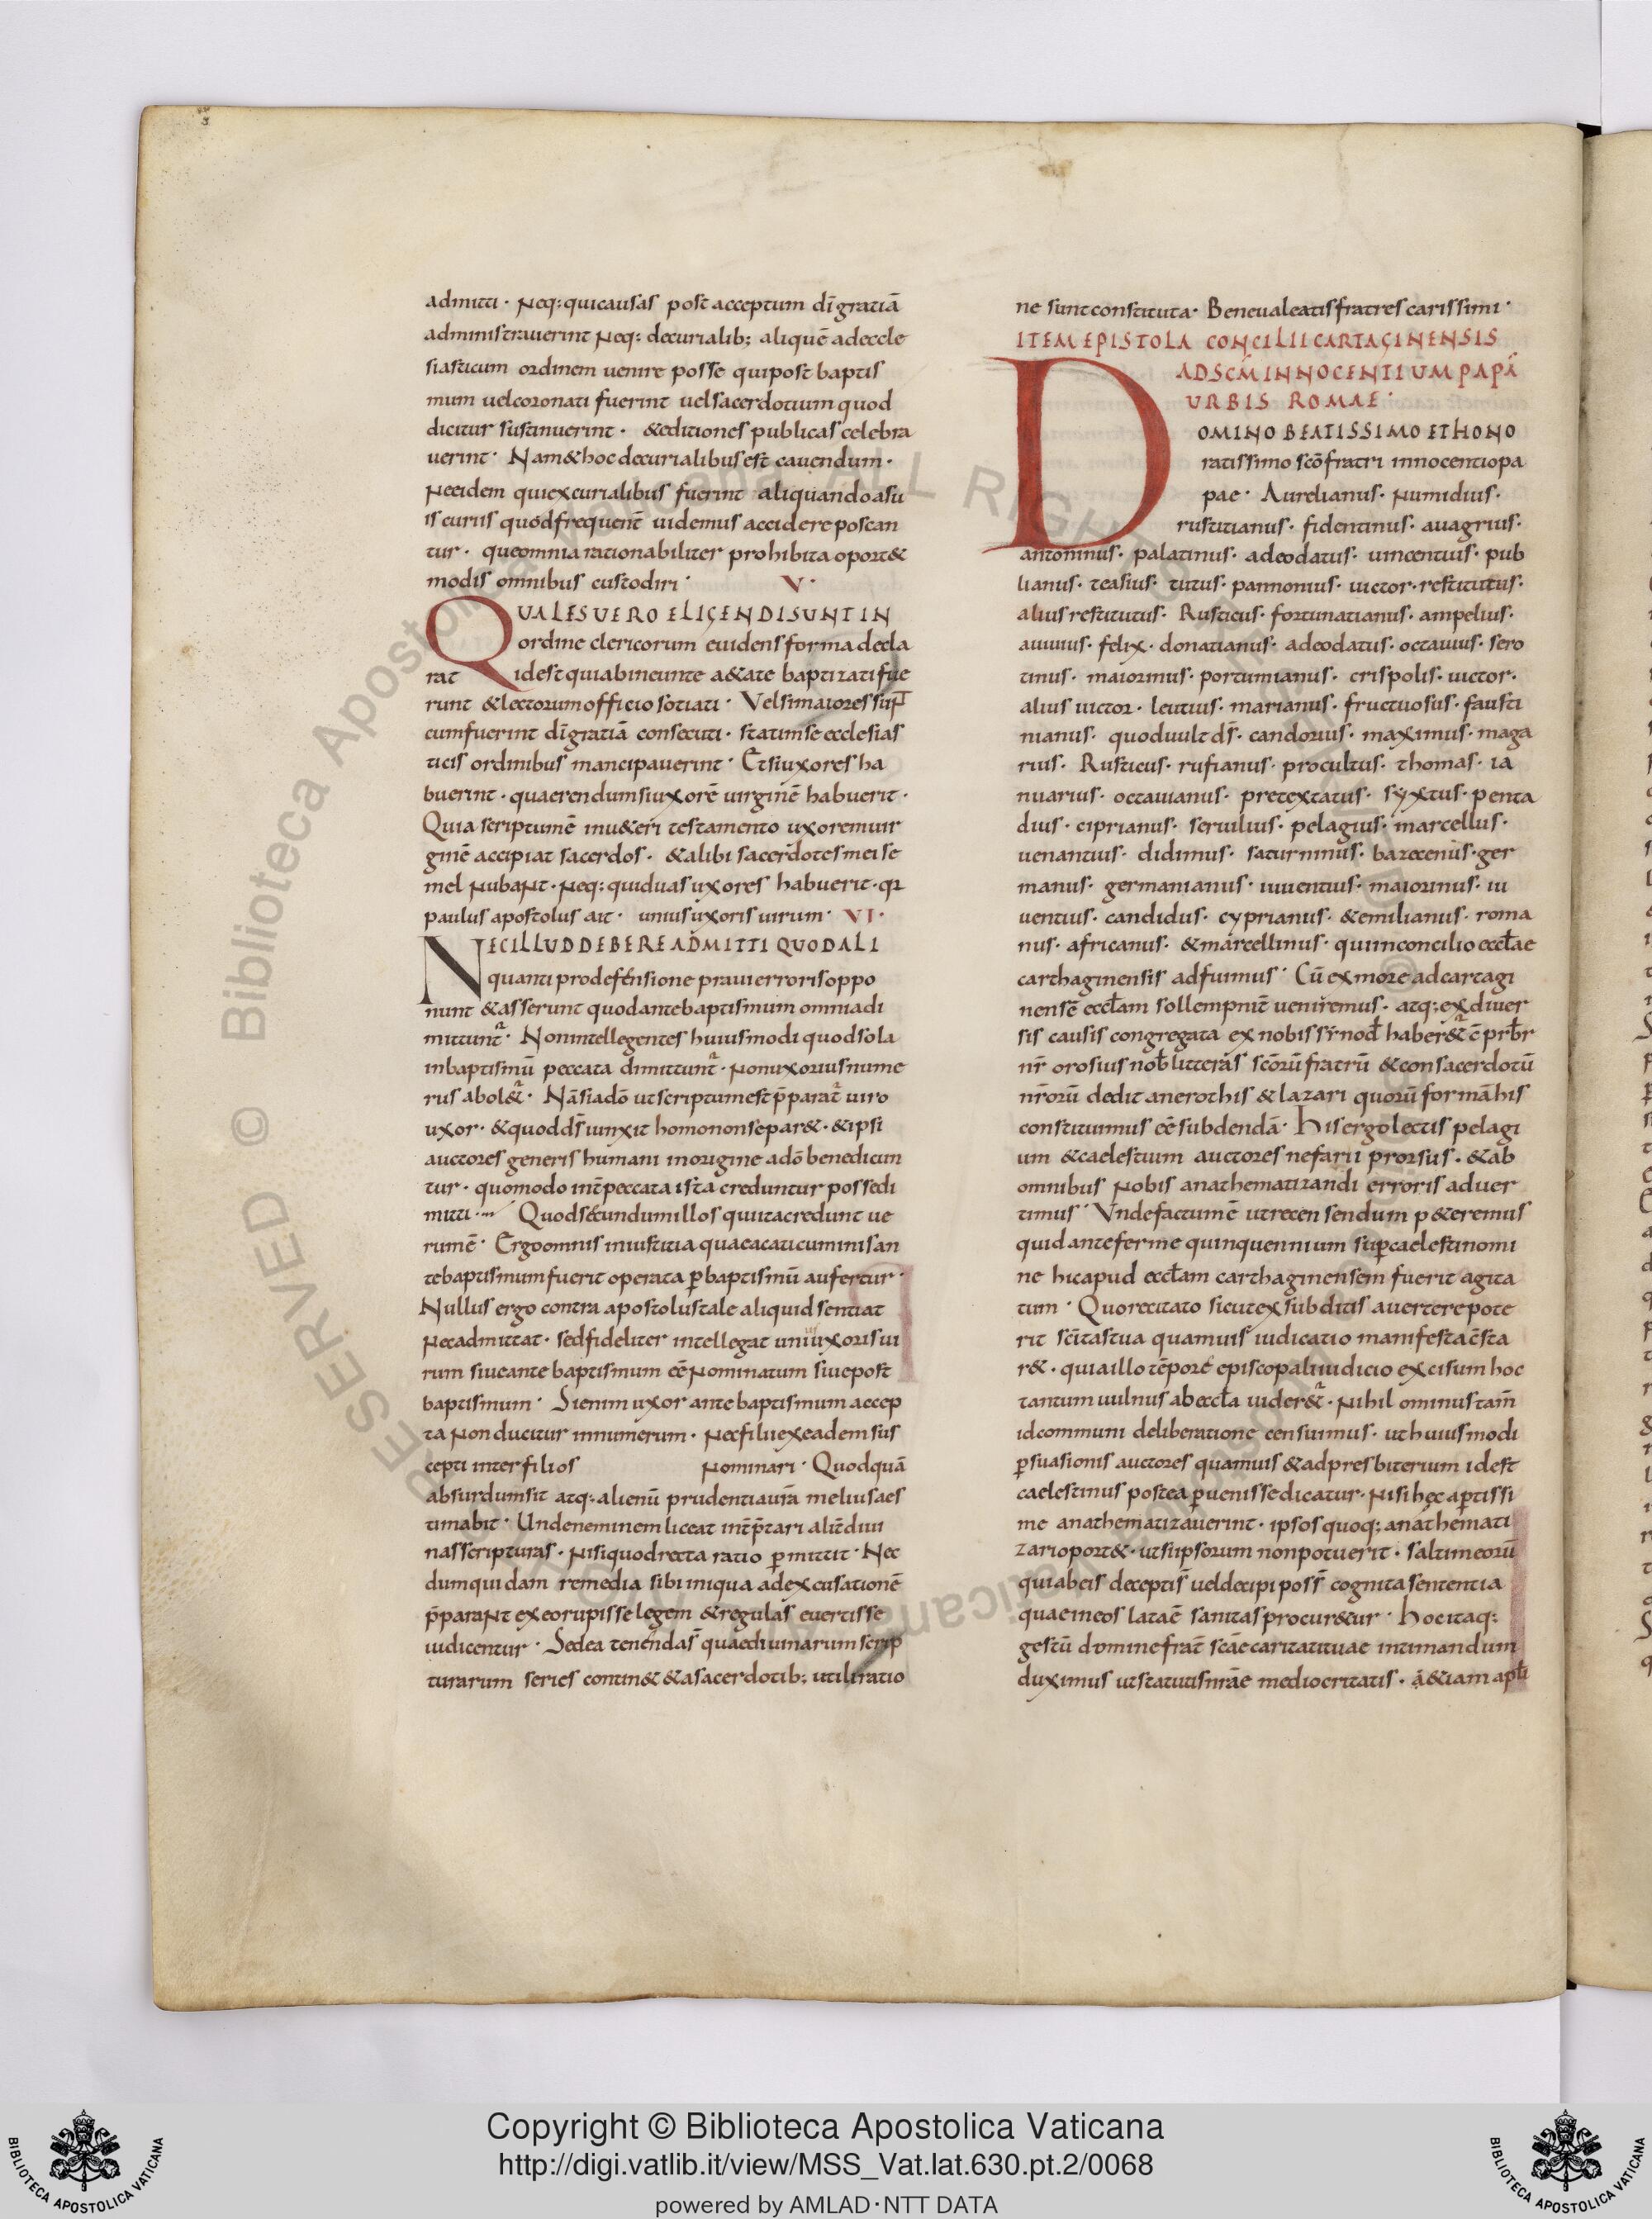 admitti · Neq: qui causas post acceptum dī gratiā
administrauerint Neq: decurialib; aliquē ad eccle
siasticum ordinem uenire posse qui post baptis
mum uel coronati fuerint uel sacerdotium quod
dicitur sustinuerint · & editiones publicas celebra
uerint · Nam & hoc de curialibus est cauendum ·
Ne eidem qui ex curialibus fuerint aliquando a su
is curiis quod frequent̄ uidemus accidere poscan
tur · que omnia rationabiliter prohibita oport&
modis omnibus custodiri · V·
QUALES UERO ELIGENDI SUNT IN
ordine clericorum euidens forma decla
rat id est qui ab ineunte a&ate baptizati fue
runt & lectorum officio sotiati · Vel si maiores sunt
cum fuerint dī gratiā consecuti · statim se ecclesias
ticis ordinibus mancipauerint · Et si uxores ha
buerint · quaerendum si uxorē uirginē habuerit ·
Quia scriptum ē in u&eri testamento uxorem uir
ginē accipiat sacerdos · & alibi sacerdotes mei se
mel NubaNt · Neq: qui duas uxores habuerit · qr
paulus apostolus ait · unius uxoris uirum · VI·
NEC ILLUD DEBERE ADMITTI QUOD ALI
quanti pro defensione praui erroris oppo
nunt & asserunt quod ante baptismum omnia di
mittunt · Non intellegentes huiusmodi quod sola
in baptismū peccata dimittunt · Non uxorius nume
rus abol& · Nā si adō ut scriptum est p̄parat uiro
uxor · & quod d̄s iunxit homo non separ& · & ipsi
auctores generis humani in origine ad̄o benedicun
tur · quomodo int̄ peccata ista creduntur posse di
mitti · Quod secundum illos qui ita credunt ue
rum ē · Ergo omnis iniustitia quae a caticuminis an
te baptismum fuerit operata p baptismū aufertur ·
Nullus ergo contra apostolus tale aliquid sentiat
Nec admittat · sed fideliter intellegat unius uxoris ui
rum siue ante baptismum eē Nominatum siue post
baptismum · Si enim uxor ante baptismum accep
ta Non ducitur in numerum · Nec filii ex eadem sus
cepti inter filios Nominari · Quodquā
absurdum sit atq: alienū prudentia ur̄a melius aes
timabit · Unde neminem liceat int̄p̄tari alit̄ diui
nas scripturas · Nisi quod recta ratio pmittit · Nec
dum quidam remedia sibi iniqua ad excusationē
p̄paraNt ex eo rupisse legem & regulas euertisse
iudicentur · Sed ea tenendas quae diuinarum scrip
turarum series contin& & a sacerdotib; utili ratio
ne sunt constituta · Bene ualeatis fratres carissimi ·
ITEM EPISTOLA CONCILII CARTAGINENSIS
AD SCM̄ INNOCENTIUM PAPĀ
URBIS ROMAE ·
DOMINO BEATISSIMO ET HONO
ratissimo scō fratri innocentio pa
pae · Aurelianus · Numidius ·
rustitianus · fidentinus · auagrius ·
antoninus · palatinus · adeodatus · uincentius · pub
lianus · teasius · titus · pannonius · uictor · restitutus ·
alius restitutus · Rusticus · fortunatianus · ampelius ·
auiuius · felix · donatianus · adeodatus · octauius · sero
tinus · maiorinus · portumianus · crispolis · uictor ·
alius uictor · leutius · marianus · fructuosus · fausti
nianus · quoduult d̄s · candorius · maximus · maga
rius · Rusticus · rufianus · procultus · thomas · ia
nuarius · octauianus · pretextatus · syxtus · penta
dius · ciprianus · seruilius · pelagius · marcellus ·
uenantius · didimus · saturninus · bazecenus · ger
manus · germanianus · iuuentius · maiorinus · iu
uentius · candidus · cyprianus · & emilianus · roma
nus · africanus · & marcellinus · qui in concilio eccłae
carthaginensis adfuimus · Cū ex more ad cartagi
nensē eccłam sollempnit̄ ueniremus · atq; ex diuer
sis causis congregata ex nobis synod̄ haber& · ē prb̄r
nr̄ orosius nob̄ litteras scōrū fratrū & consacerdotū
nr̄orū dedit an erothis & lazari quorū formā his
constituimus eē subdendā · His ergo lectis pelagi
um & caelestium auctores nefarii prorsus · & ab
omnibus Nobis anathematizandi erroris aduer
timus · Vnde factum ē ut recensendum p&eremus
quid ante ferme quinquennium sup caelesti nomi
ne hic apud eccłam carthaginensem fuerit agita
tum · Quo recitato sicut ex subditis auertere pote
rit scītas tua quamuis iudicatio manifesta c̄sta
r& · qua illo tēpore episcopali iudicio excisum hoc
tantum uulnus ab eccła uider& · Nihil ominus tam̄
id communi deliberatione censuimus · ut huiusmodi
psuasionis auctores quamuis & ad presbiterium idest
caelestinus postea puenisse dicatur · Nisi hęc aptissi
me anathematizauerint · ipsos quoq; anathemati
zari oport& · ut si ipsorum non potuerit · saltim eorū
qui ab eis deceptis uel decipi poss̄ cognita sententia
quae in eos lata ē sanitas procur&ur · Hoc itaq:
gestū domine frat̄ scāe caritati tuae intimandum
duximus ut statutis nr̄ae mediocritatis · a &iam apłi
Copyright © Biblioteca Apostolica Vaticana
http://digi.vatlib.it/view/MSS_Vat.lat.630.pt.2/0068
powered by AMLAD·NTT DATA
BIBLIOTECA APOSTOLICA VATICANA
BIBLIOTECA APOSTOLICA VATICANA